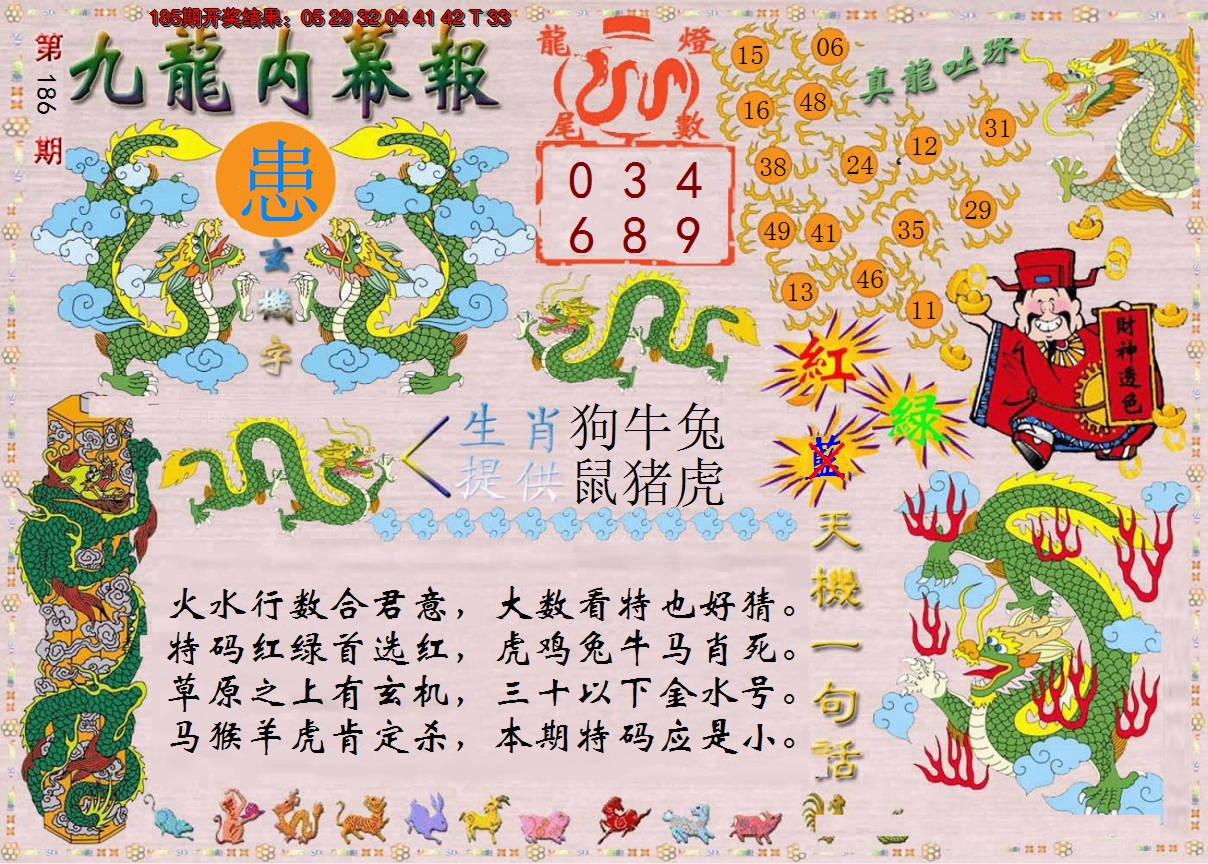 185期开奖结果：05 29 32 04 41 42 T 33
第186期
九龍内幕報
患
玄機字
龍燈
尾數
0 3 4
6 8 9
真龍吐珠
15 06
16 48
12 31
38 24
29
49 41 35
13 46
11
財神透色
紅
綠
藍
生肖 狗牛兔
提供 鼠猪虎
天機一句話
火水行数合君意，大数看特也好猜。
特码红绿首选红，虎鸡兔牛马肖死。
草原之上有玄机，三十以下金水号。
马猴羊虎肯定杀，本期特码应是小。